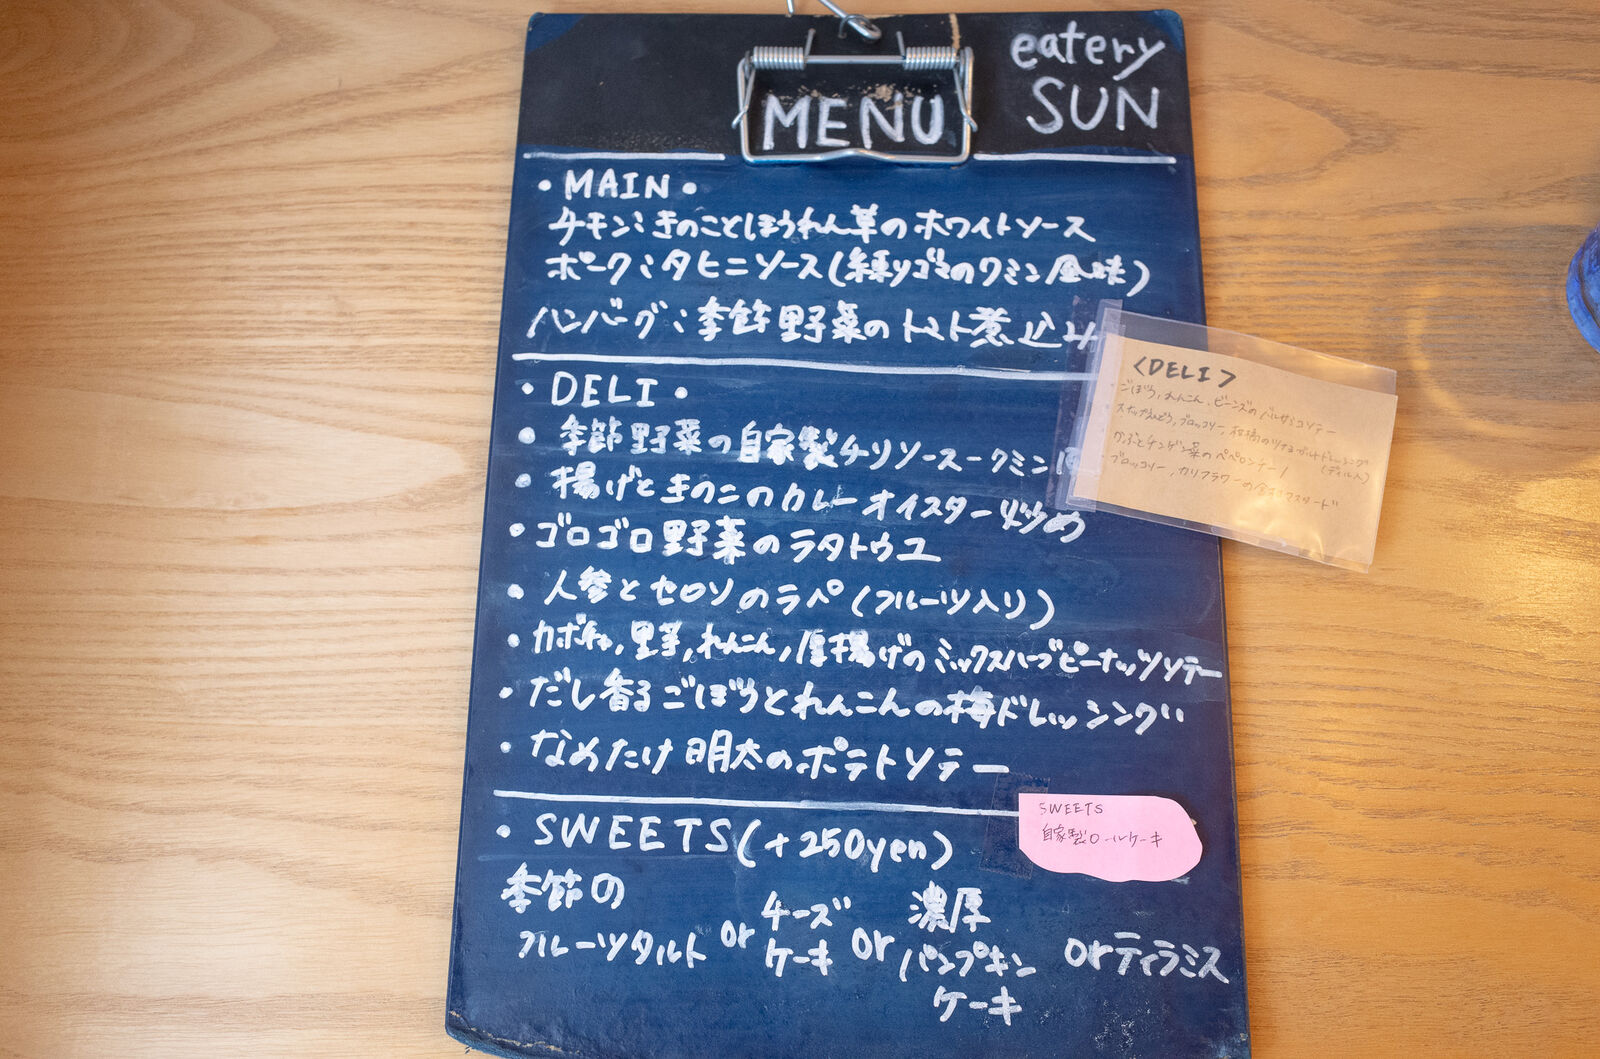 eatery
SUN
MENU
・MAIN・
チキン:きのことほうれん草のホワイトソース
ポーク:タヒニソース(練りゴマのクミン風味)
ハンバーグ:季節野菜のトマト煮込み
・DELI・
・季節野菜の自家製チリソースークミン風
・揚げときのこのカレーオイスター炒め
・ゴロゴロ野菜のラタトゥユ
・人参とセロリのラペ(フルーツ入り)
・カボチャ,里芋,れんこん,厚揚げのミックスハーブピーナッツソテー
・だし香るごぼうとれんこんの梅ドレッシング
・なめたけ明太のポテトソテー
<DELI>
・ごぼう,れんこん,ビーンズのバルサミコソテー
スナップえんどう,ブロッコリー,柑橘のヨーグルトドレッシング
(ディルト)
かぶとチンゲン菜のペペロンチーノ
・ブロッコリー,カリフラワーの
マスタード
・SWEETS(+250yen)
季節の
フルーツタルト or チーズ
ケーキ or 濃厚
パンプキン
ケーキ or ティラミス
SWEETS
自家製ロールケーキ